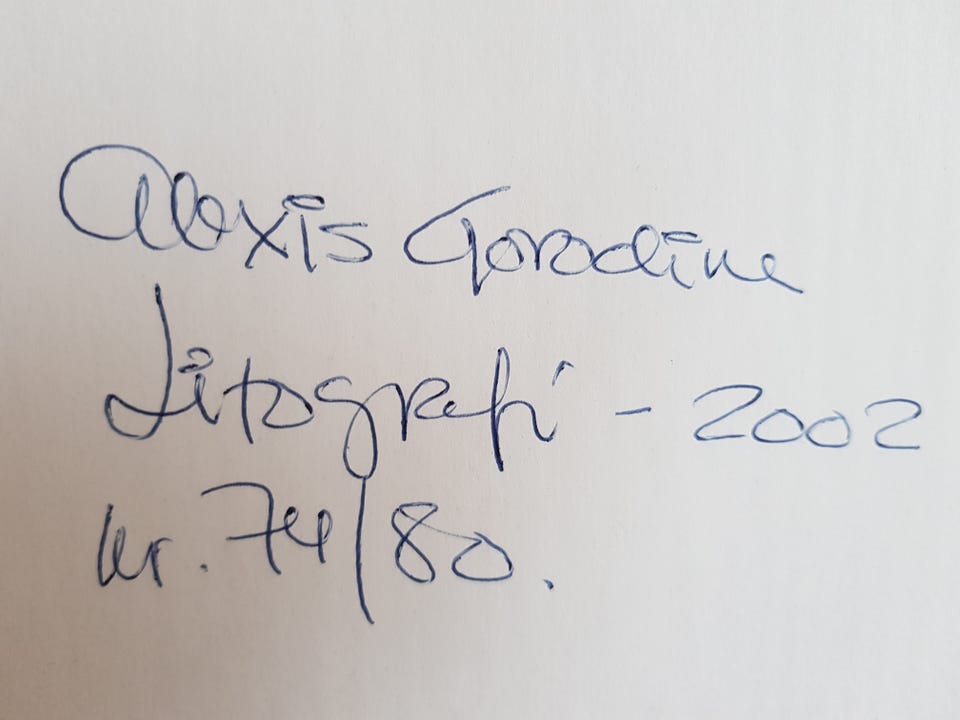 Alexis Gorodine
Litografi - 2002
nr. 74/80.